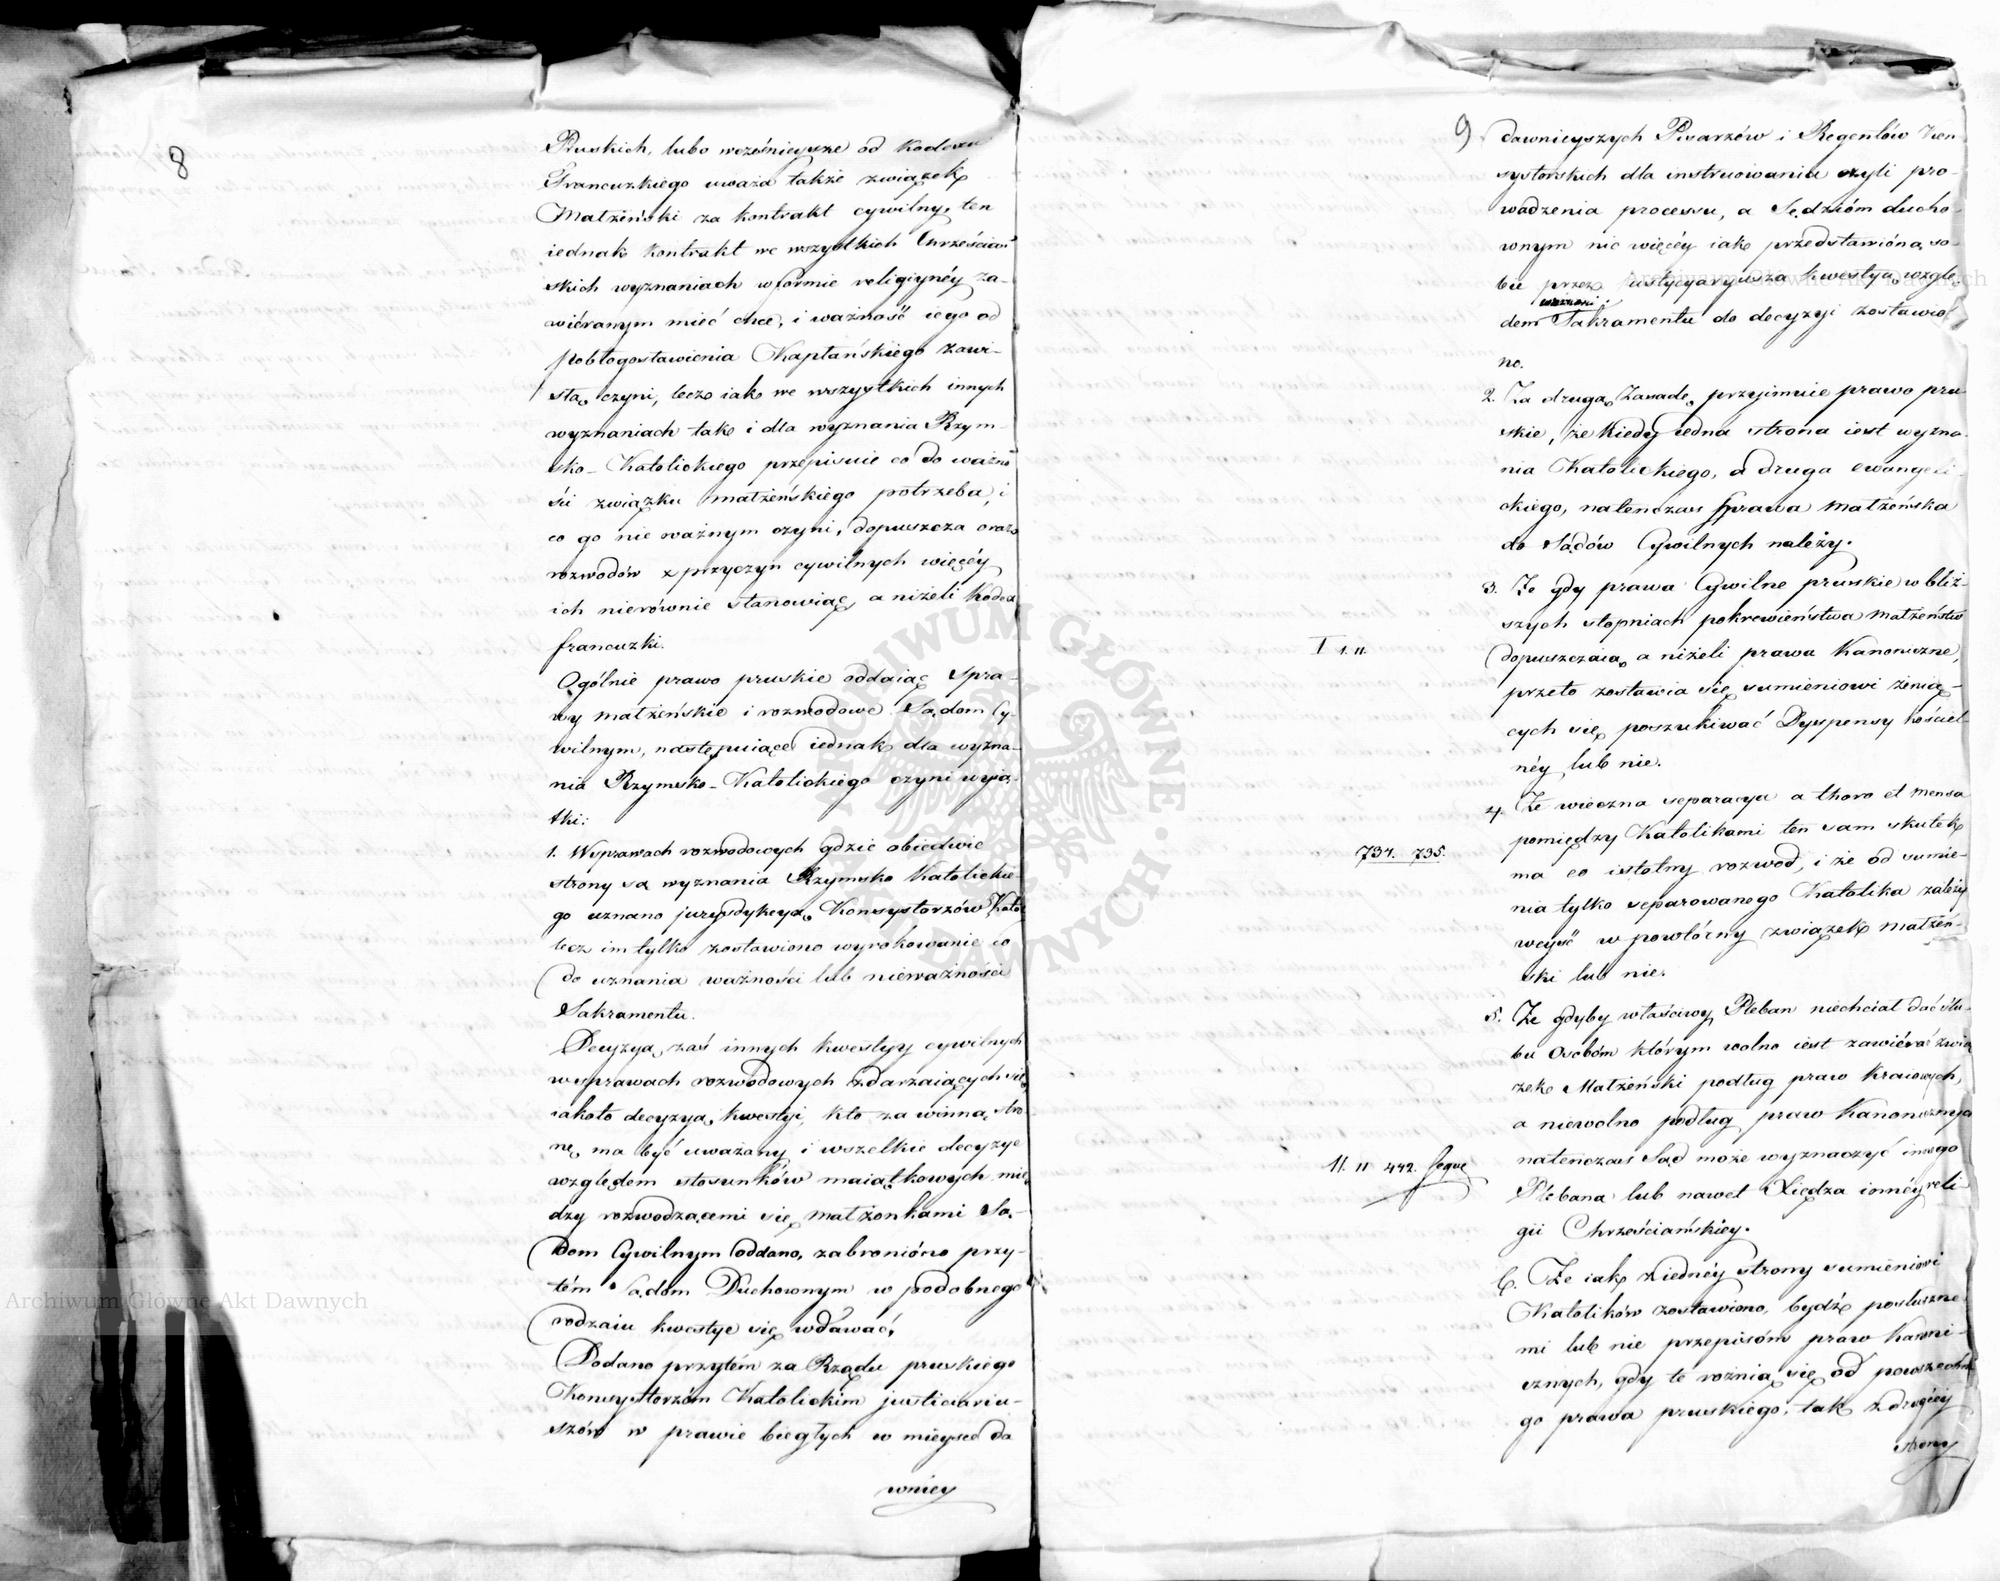 8
Pruskich, lubo wcześnieysze od Kodexu
Francuzkiego uważa także związek
Małżeński za kontrakt cywilny, ten
iednak kontrakt we wszystkich Chrześciań
skich wyznaniach w formie religiynéy za-
wiéranym mieć chce, i ważność iego od
pobłogosławienia Kapłańskiego zawi-
słą czyni, lecz iak we wszystkich innych
wyznaniach tak i dla wyznania Rzym-
sko-Katolickiego przepisuie co do ważno
ści związku małżeńskiego potrzeba, i
co go nie ważnym czyni, dopuszcza oraz
rozwodów z przyczyn cywilnych więcéy
ich nierównie stanowiąc, a niżeli Kodex
francuzki.
Ogólnie prawo pruskie oddaiąc spra-
wy małżeńskie i rozwodowe Sądom Cy-
wilnym, następuiące iednak dla wyzna-
nia Rzymsko-Katolickiego czyni wyią-
tki:
1. W sprawach rozwodowych gdzie obiedwie
strony są wyznania Rzymsko Katolickie-
go uznano juryzdykcyą Konsystorzów Kato
lecz im tylko zostawiono wyrokowanie co
do uznania ważności lub nieważności
Sakramentu.
Decyzyą zaś innych kwestyy cywilnych
w sprawach rozwodowych zdarzaiących się
iakoto decyzyą kwestyi, kto za winną stro-
nę ma być uważany i wszelkie decyzye
względem stosunków maiątkowych mię
dzy rozwodzącemi się małżonkami Są-
dom Cywilnym oddano, zabroniono przy-
tém Sądom Duchownym w podobnego
rodzaiu kwestye się wdawać.
Dodano przytém za Rządu pruskiego
Konsystorzóm Katolickim justiciariu-
szów w prawie biegłych w mieysce da
wniey
9
dawnieyszych Pisarzów i Regentów Kon
systorskich dla instruowania czyli pro-
wadzenia processu, a Sędzióm ducho-
wnym nic więcéy iak przedstawioną so-
bie przez Justycyaryusza kwestyą wzglę-
dem Sakramentu do decyzyi zostawio
no.
2. Za drugą Zasadę przyjmuie prawo pru
skie, że kiedy iedna strona iest wyzna-
nia Katolickiego, a druga ewangeli-
ckiego, natenczas sprawa małżeńska
do Sądów Cywilnych należy.
3. Że gdy prawa Cywilne pruskie w bliż-
szych stopniach pokrewieństwa małżeństw
I 1. II.
dopuszczaią, a niżeli prawa Kanoniczne,
przeto zostawia się sumieniowi żenią-
cych się, poszukiwać Dyspensy kościel-
néy lub nie.
4. Że wieczna separacya a thoro et mensa
pomiędzy Katolikami ten sam skutek
734. 735.
ma co istotny rozwód, i że od sumie-
nia tylko separowanego Katolika zależy
weyść w powtórny związek małżeń-
ski lub nie.
5. Że gdyby właściwy Pleban niechciał dać ślu-
bu osobóm którym wolno iest zawiérać zwią
zek Małżeński podług praw kraiowych,
a niewolno podług praw Kanonicznych
natenczas Sąd może wyznaczyć innego
11. II 442. seque
Plebana lub nawet Xiędza innéy reli-
gii Chrześciańskiéy.
6. Że iak z iednéy strony sumieniowi
Katolików zostawiono, bydź posłuszne-
mi lub nie przepisóm praw Kanoni-
cznych, gdy te rożnią się od powszechne
go prawa pruskiego, tak z drugiéy
strony
Archiwum Główne Akt Dawnych
Archiwum Główne Akt Dawnych
ARCHIWUM GŁÓWNE AKT DAWNYCH